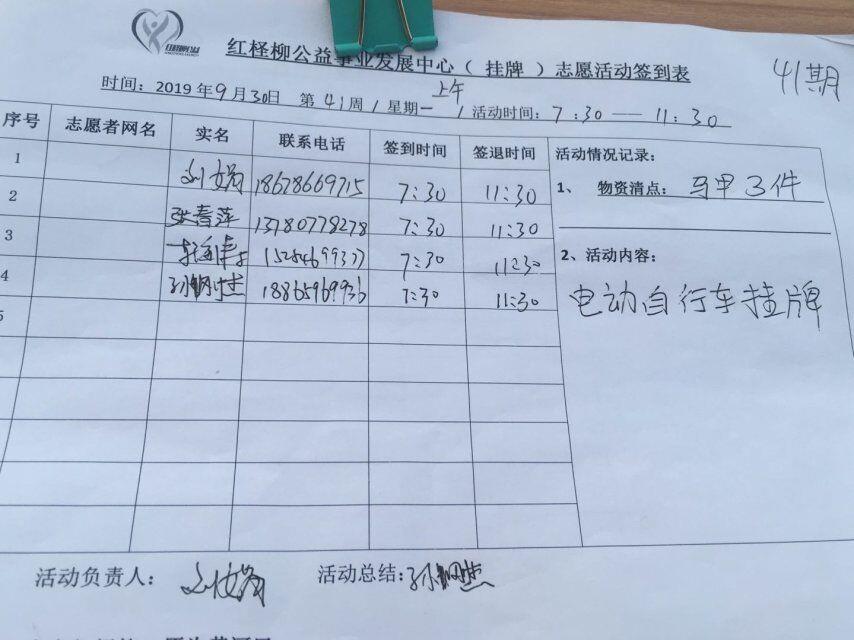 红柽柳公益事业发展中心（ 挂牌 ）志愿活动签到表
41期
时间：2019年9月30日 第41周/星期一/上午 活动时间：7:30 — 11:30
序号 志愿者网名 实名 联系电话 签到时间 签退时间 活动情况记录：
1 18678669715 7:30 11:30
1、 物资清点： 马甲3件
2 张春萍 13780778278 7:30 11:30
3 7:30 11:30
2、活动内容：
4 18865969936 7:30 11:30
电动自行车挂牌
5
活动负责人： 活动总结：